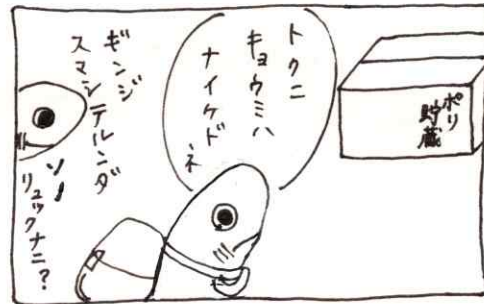 ポリ
貯蔵
トクニ
キョウミハ
ナイケドネ
ギンジ
スマシテルンダ
ソノ
リュックナニ?